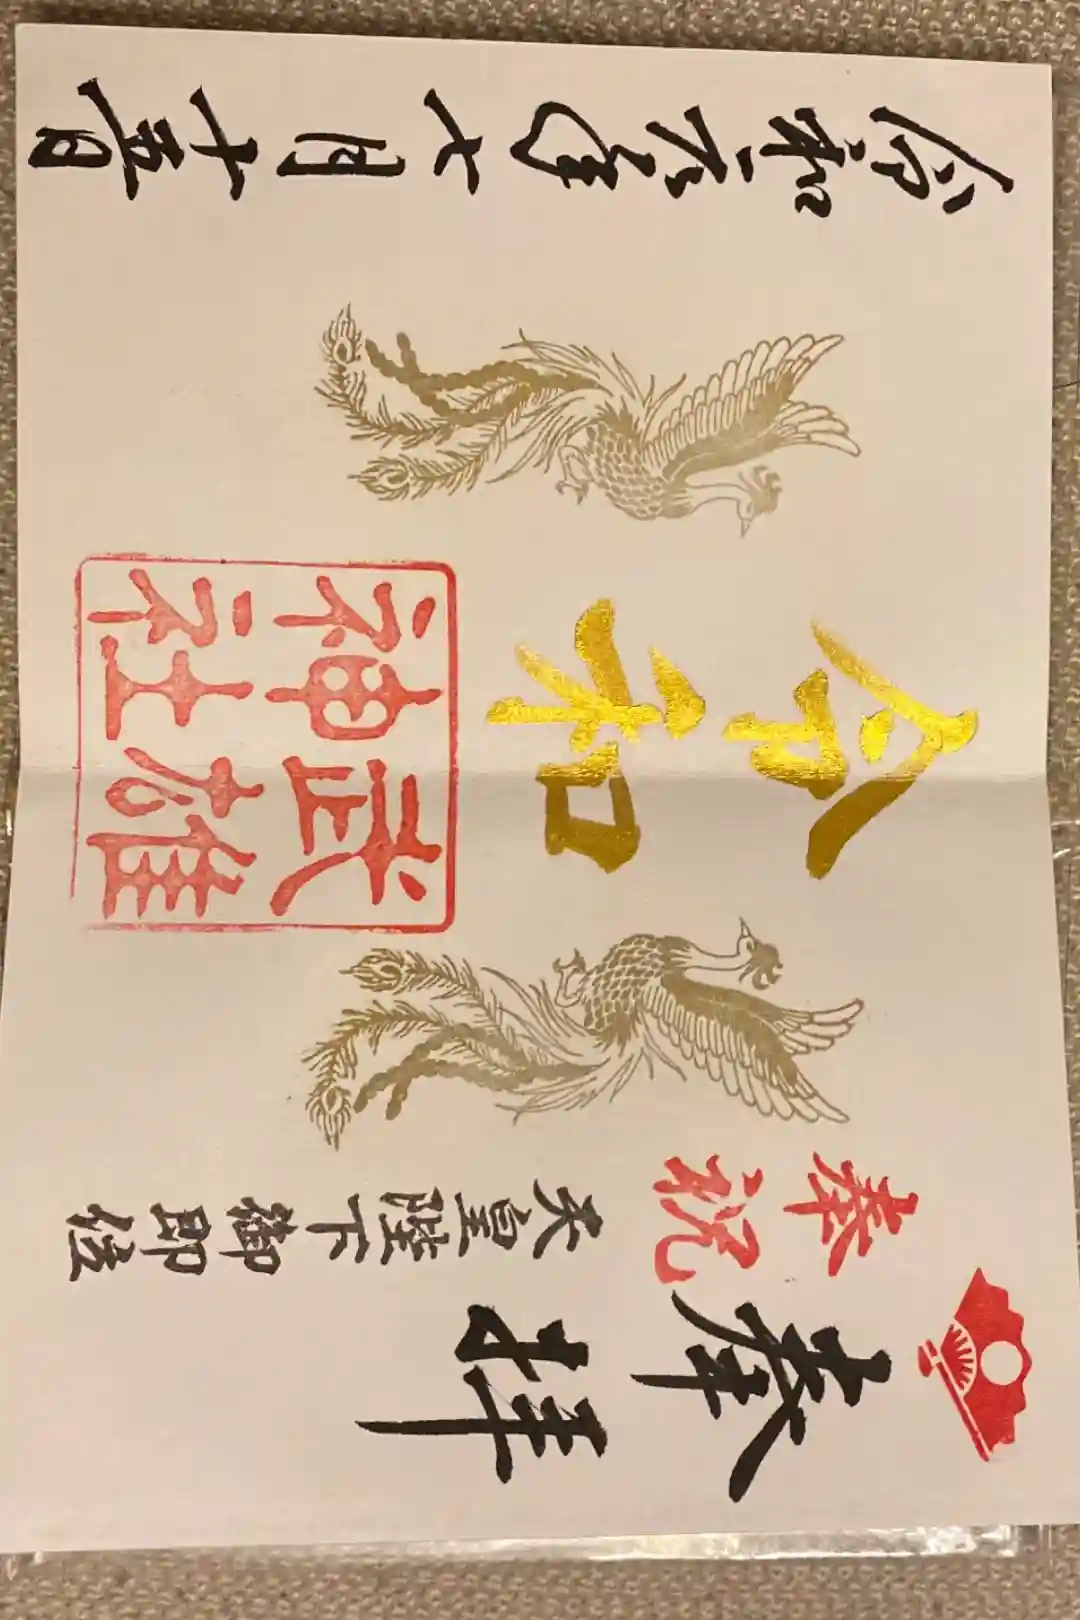 奉拝
奉祝
天皇陛下御即位
令和
武雄
神社
令和元年七月十五日